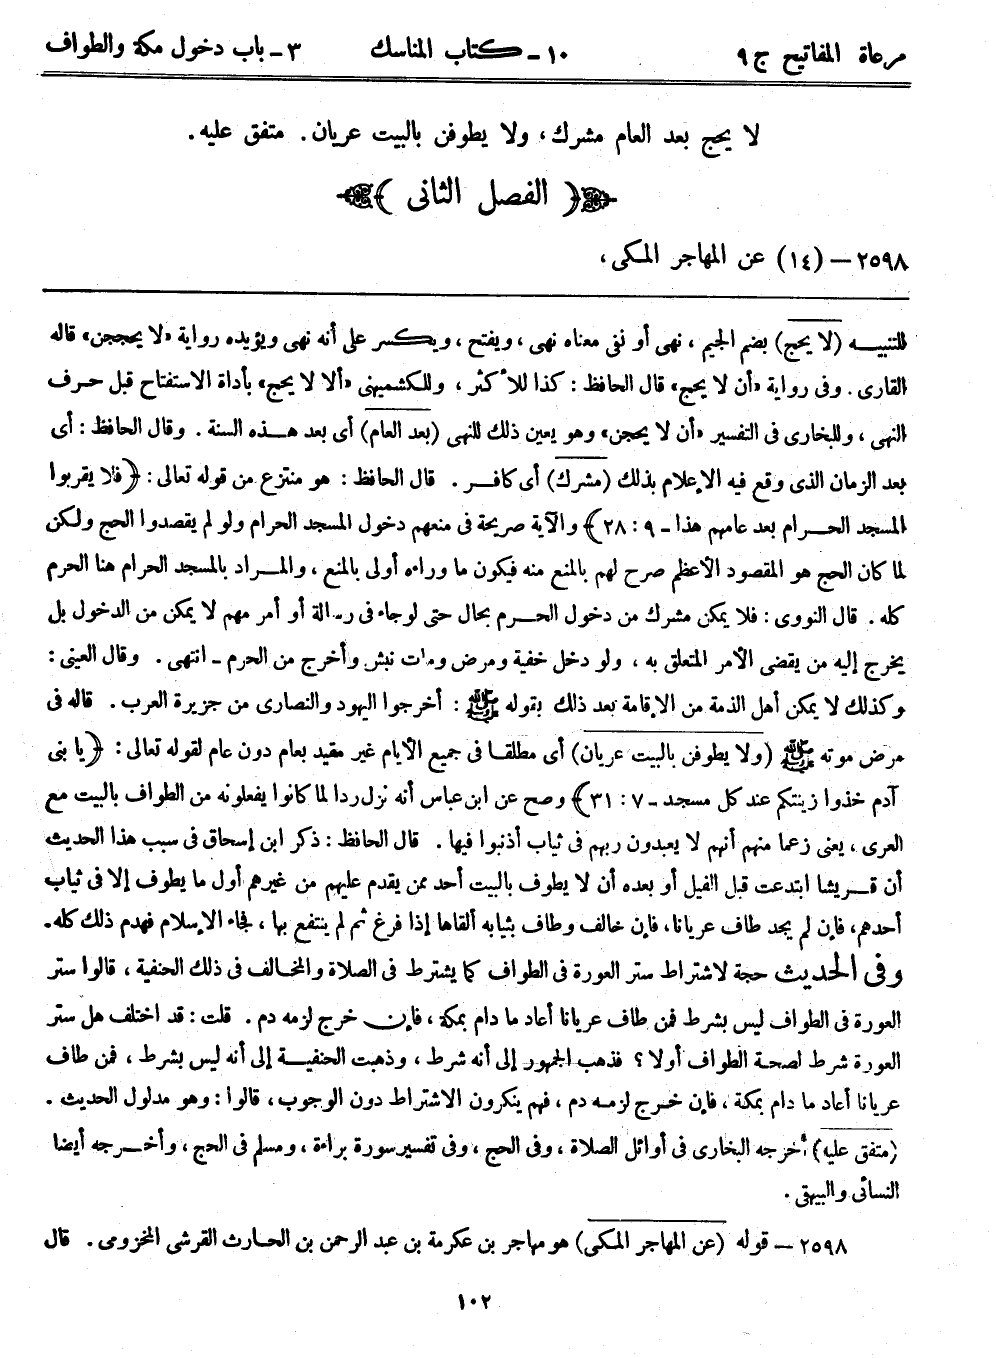 مرعاة المفاتيح ج ٩ ١٠ – كتاب المناسك ٣ – باب دخول مكة والطواف
لا يحج بعد العام مشرك، ولا يطوفن بالبيت عريان. متفق عليه.
﴿ الفصل الثانى ﴾
٢٥٩٨ – (١٤) عن المهاجر المكى،
للتنبيه (لا يحج) بضم الجيم، نهى أو نفى معناه نهى، ويفتح، ويكسر على أنه نهى ويؤيده رواية «لا يحججن» قاله
القارى. وفى رواية «أن لا يحج» قال الحافظ: كذا للأكثر، وللكشميهنى «ألا لا يحج» بأداة الاستفتاح قبل حرف
النهى، وللبخارى فى التفسير «أن لا يحجن» وهو يعين ذلك للنهى (بعد العام) أى بعد هذه السنة. وقال الحافظ: أى
بعد الزمان الذى وقع فيه الإعلام بذلك (مشرك) أى كافر. قال الحافظ: هو منتزع من قوله تعالى: ﴿فلا يقربوا
المسجد الحرام بعد عامهم هذا – ٩ : ٢٨﴾ والآية صريحة فى منعهم دخول المسجد الحرام ولو لم يقصدوا الحج ولكن
لما كان الحج هو المقصود الأعظم صرح لهم بالمنع منه فيكون ما وراءه أولى بالمنع، والمراد بالمسجد الحرام هنا الحرم
كله. قال النووى: فلا يمكن مشرك من دخول الحرم بحال حتى لو جاء فى رسالة أو أمر مهم لا يمكن من الدخول بل
يخرج إليه من يقضى الأمر المتعلق به، ولو دخل خفية ومرض ومات نبش وأخرج من الحرم – انتهى. وقال العينى:
وكذلك لا يمكن أهل الذمة من الإقامة بعد ذلك بقوله ﷺ: أخرجوا اليهود والنصارى من جزيرة العرب. قاله فى
مرض موته ﷺ (ولا يطوفن بالبيت عريان) أى مطلقا فى جميع الأيام غير مقيد بعام دون عام لقوله تعالى: ﴿يا بنى
آدم خذوا زينتكم عند كل مسجد – ٧ : ٣١﴾ وصح عن ابن عباس أنه نزل ردا لما كانوا يفعلونه من الطواف بالبيت مع
العرى، يعنى زعما منهم أنهم لا يعبدون ربهم فى ثياب أذنبوا فيها. قال الحافظ: ذكر ابن إسحاق فى سبب هذا الحديث
أن قريشا ابتدعت قبل الفيل أو بعده أن لا يطوف بالبيت أحد ممن يقدم عليهم من غيرهم أول ما يطوف إلا فى ثياب
أحدهم، فإن لم يجد طاف عريانا، فإن خالف وطاف بثيابه ألقاها إذا فرغ ثم لم ينتفع بها، فجاء الإسلام فهدم ذلك كله.
وفى الحديث حجة لاشتراط ستر العورة فى الطواف كما يشترط فى الصلاة والمخالف فى ذلك الحنفية، قالوا ستر
العورة فى الطواف ليس بشرط فمن طاف عريانا أعاد ما دام بمكة، فإن خرج لزمه دم. قلت: قد اختلف هل ستر
العورة شرط لصحة الطواف أو لا؟ فذهب الجمهور إلى أنه شرط، وذهبت الحنفية إلى أنه ليس بشرط، فمن طاف
عريانا أعاد ما دام بمكة، فإن خرج لزمه دم، فهم ينكرون الاشتراط دون الوجوب، قالوا: وهو مدلول الحديث.
(متفق عليه) أخرجه البخارى فى أوائل الصلاة، وفى الحج، وفى تفسير سورة براءة، ومسلم فى الحج، وأخرجه أيضا
النسائى والبيهقى.
٢٥٩٨ – قوله (عن المهاجر المكى) هو مهاجر بن عكرمة بن عبد الرحمن بن الحارث القرشى المخزومى. قال
١٠٢